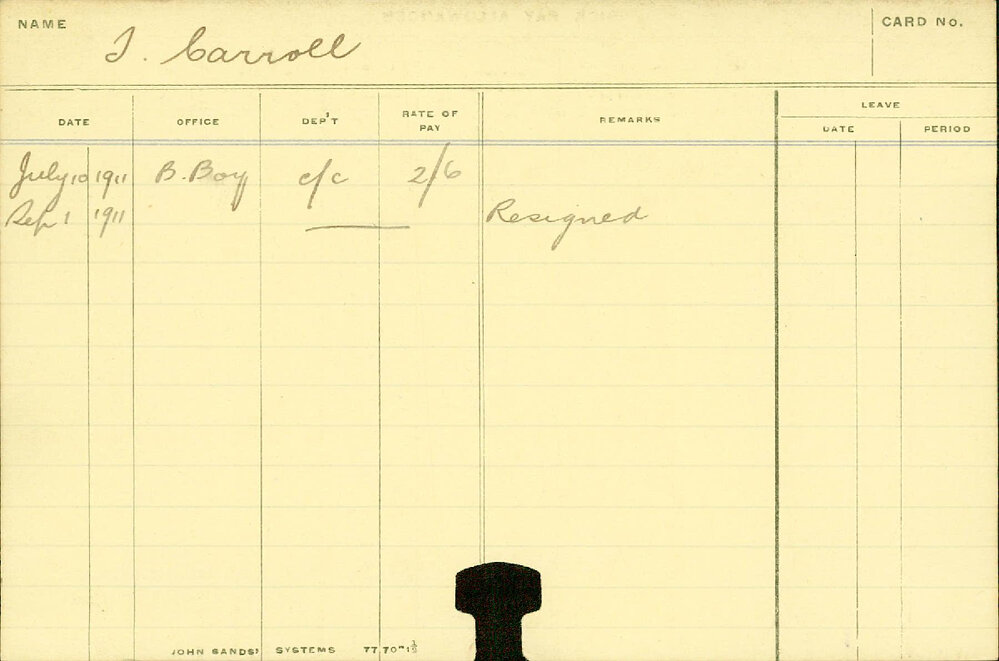 NAME J. Carroll CARD No.
DATE OFFICE DEP'T RATE OF PAY REMARKS LEAVE
DATE PERIOD
July 10 1911 B. Boy c/c 2/6
Sep 1 1911 Resigned
JOHN SANDS' SYSTEMS 7770"1½